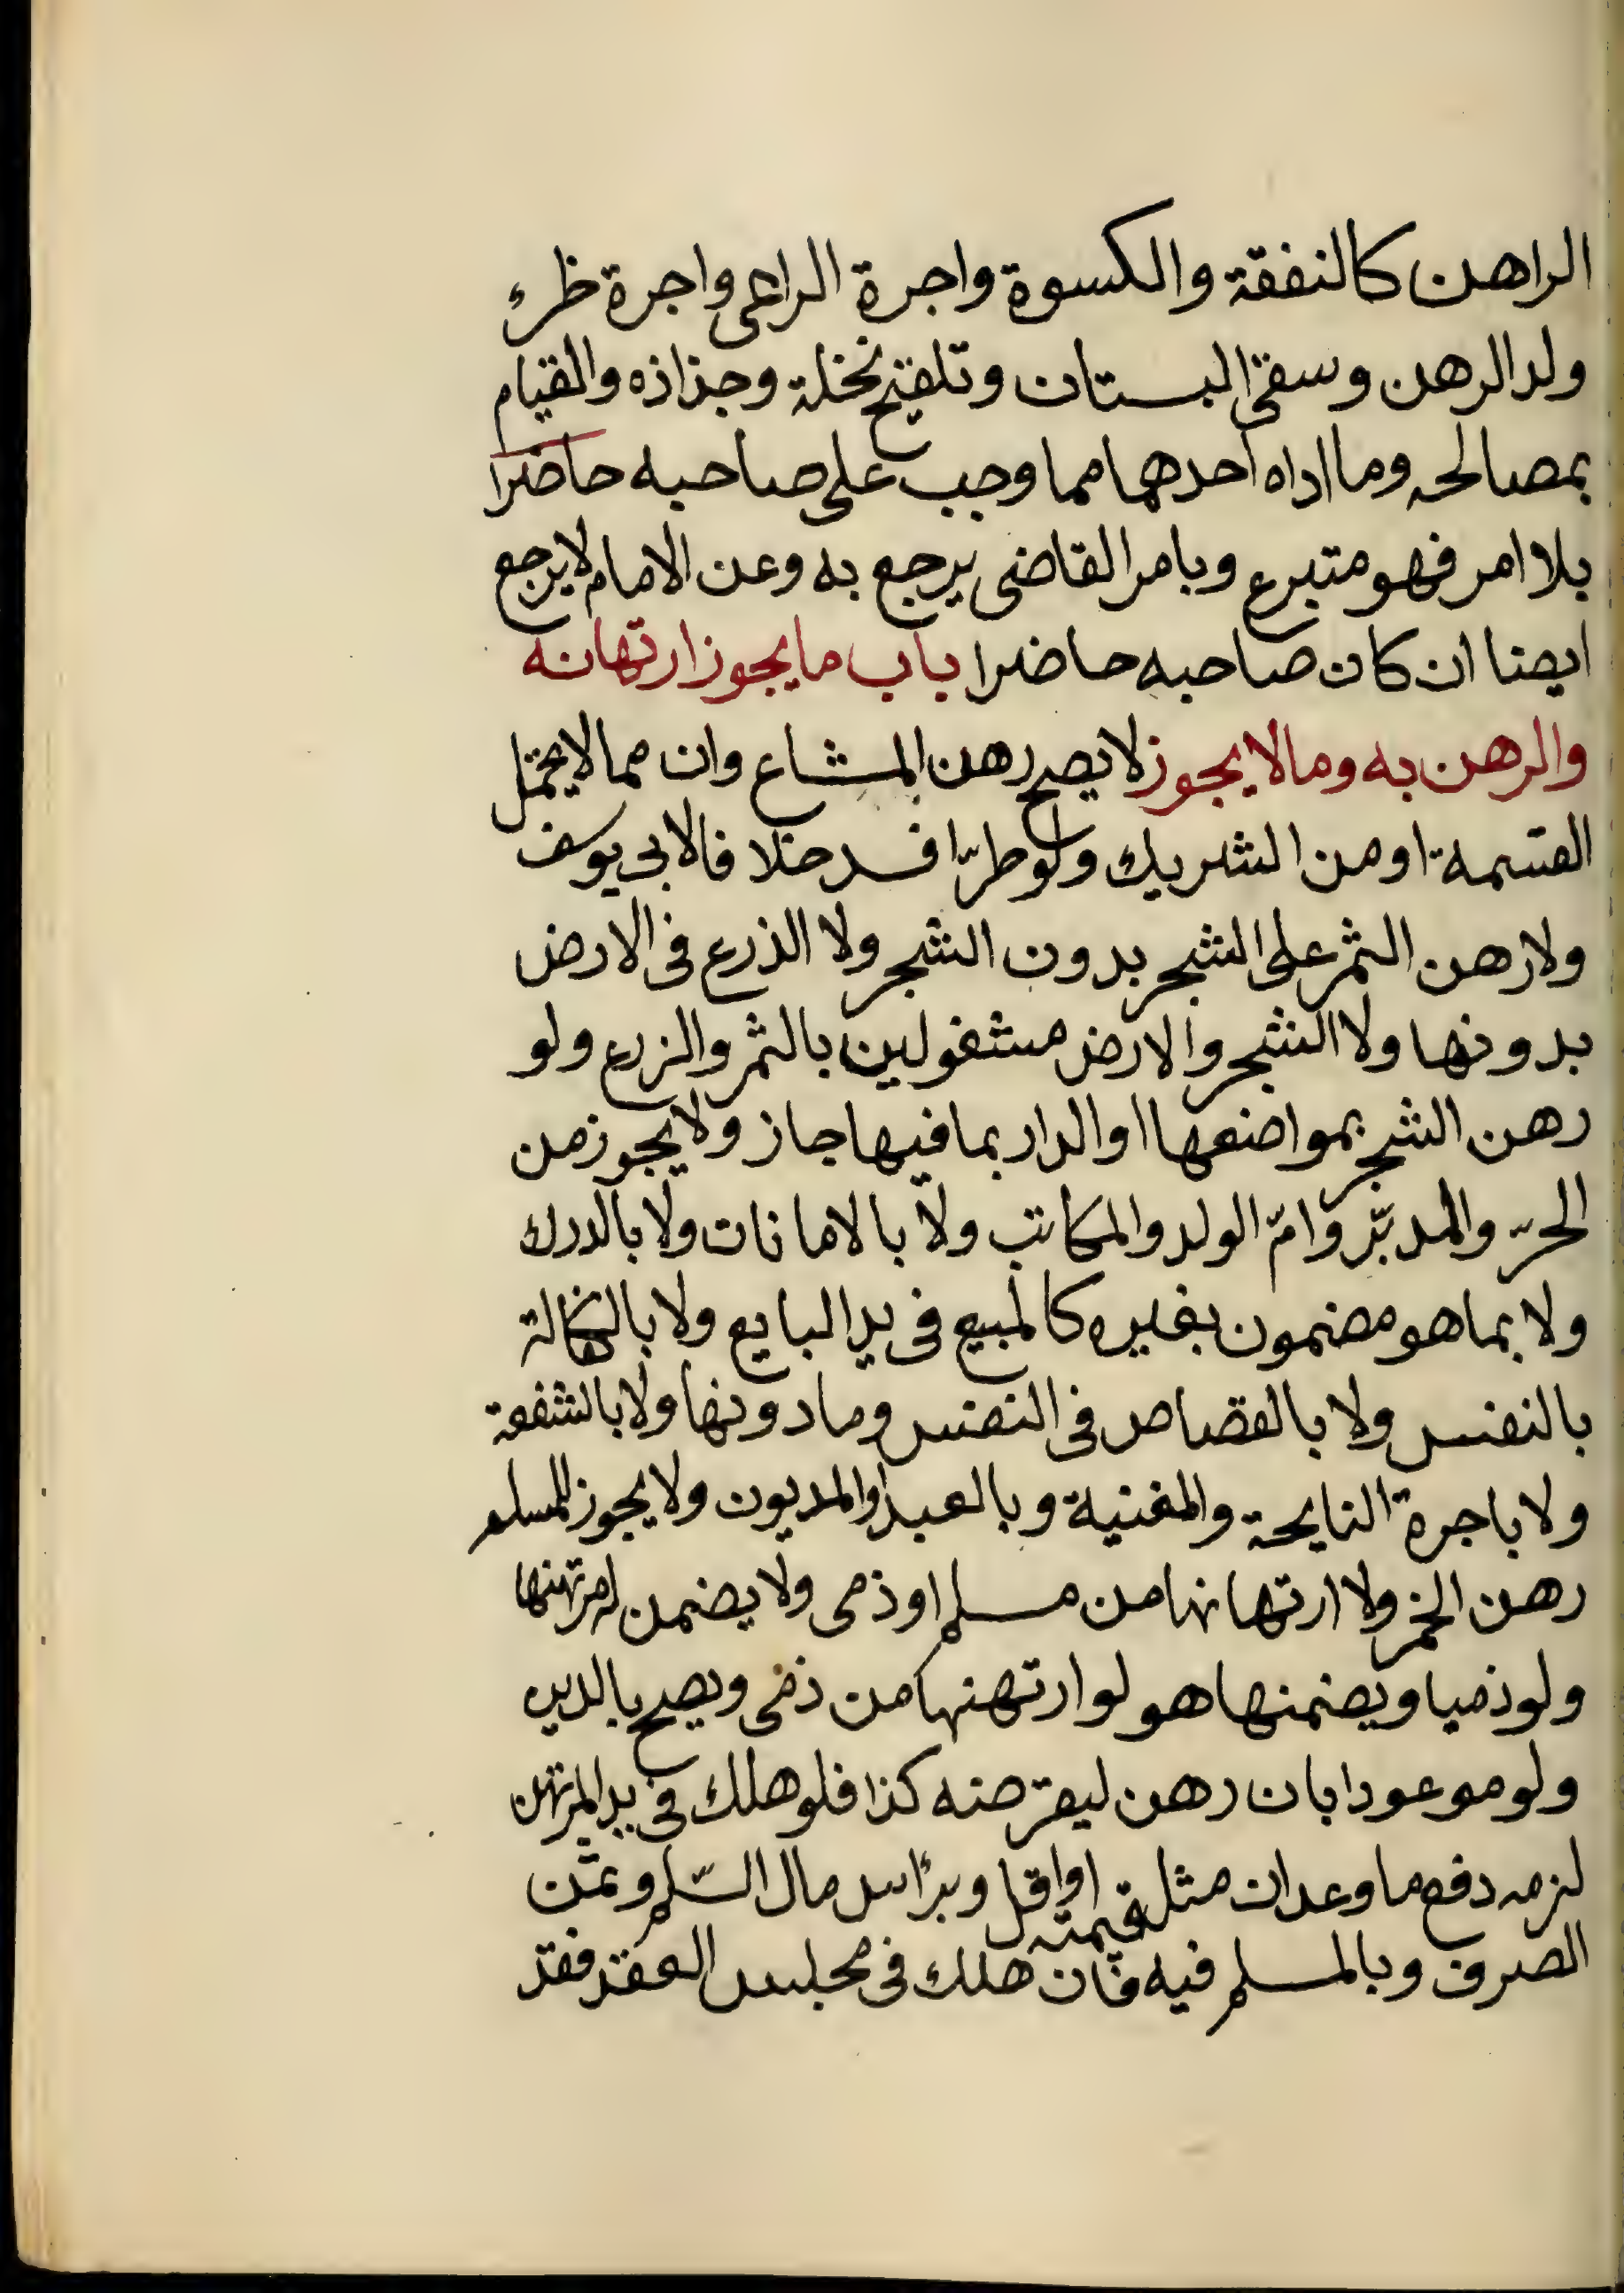 الراهن كالنفقة والكسوة واجرة الراعى واجرة ظرء
ولد الرهن وسقى البستان وتلقيح نخلة وجذاذه والقيام
بمصالحه وما اداه احدهما مما وجب على صاحبه حاضرا
بلا امر فهو متبرع وبامر القاضى يرجع به وعن الامام لا يرجع
ايضا ان كان صاحبه حاضرا باب ما يجوز ارتهانه
والرهن به وما لا يجوز لا يصح رهن المشاع وان مما لا يحتمل
القسمة او من الشريك ولو طرّا فسد خلافا لابى يوسف
ولا رهن الثمر على الشجر بدون الشجر ولا الذرع فى الارض
بدونها ولا الشجر والارض مشغولين بالثمر والزرع ولو
رهن الشجر بمواضعها او الدار بما فيها جاز ولا يجوز من
الحرّ والمدبّر وامّ الولد والمكاتب ولا بالامانات ولا بالدرك
ولا بما هو مضمون بغيره كالمبيع فى يد البايع ولا بالكفالة
بالنفس ولا بالقصاص فى النفس وما دونها ولا بالشفعة
ولا باجرة النايحة والمغنية وبالعبد والمديون ولا يجوز للمسلم
رهن الخمر ولا ارتهانها من مسلم او ذمى ولا يضمن له مرتهنها
ولو ذميا ويضمنها هو لو ارتهنها من ذمى ويصح بالدين
ولو موعودا بان رهن ليقرضه كذا فلو هلك فى يد المرتهن
لزمه دفع ما وعد ان مثل قيمته او اقل وبرأس مال السّلم وثمن
الصرف وبالمسلم فيه فان هلك فى مجلس العقد فقد